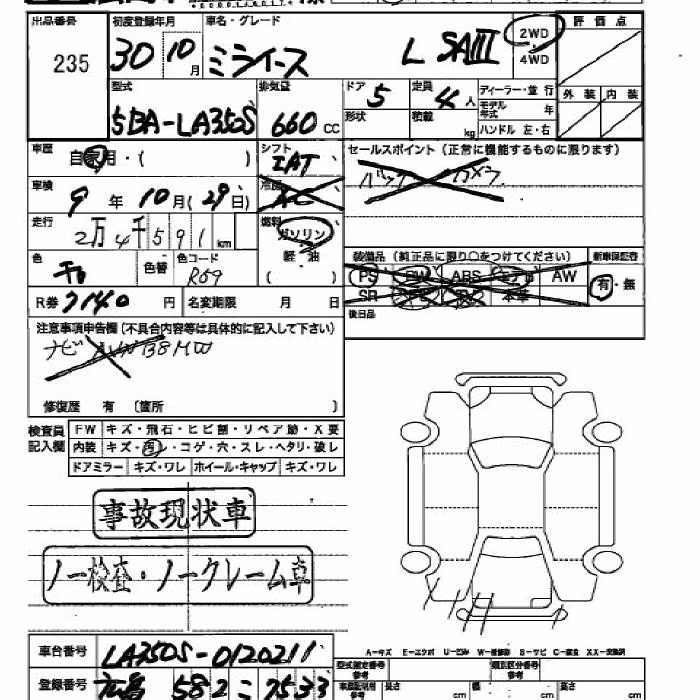 出品番号 初度登録年月 車名・グレード 評価点
235 30 10月 ミライース L SAIII 2WD
4WD
型式 排気量 ドア 5 定員 4 人 ディーラー・並行 外装 内装
5BA-LA350S 660 CC 形状 積載 kg モデル年式 年
ハンドル 左・右
車歴 自家用・( ) シフト IAT セールスポイント(正常に機能するものに限ります)
車検 9 年 10 月(29日) 冷房 AC バック カメラ
走行 2万4千591 km 燃料 ガソリン
軽油
( )
色 色替 色コード R69 装備品(純正品に限り○をつけてください) 新車保証書
PS PW ABS エアB AW 有・無
SR 本革
R券 7140 円 名変期限 月 日 後日品
注意事項申告欄(不具合内容等は具体的に記入して下さい)
ナビ
修復歴 有 〔箇所 〕
検査員記入欄 FW キズ・飛石・ヒビ割・リペア跡・X要
内装 キズ・汚・コゲ・穴・スレ・ヘタリ・破レ
ドアミラー キズ・ワレ ホイール・キャップ キズ・ワレ
事故現状車
ノー検査・ノークレーム車
車台番号 LA350S-0120211
A-キズ E-エクボ U-凹み W-補修跡 S-サビ C-腐食 XX-交換済
登録番号 広島 582 こ 7533
型式指定番号 参考 類別区分番号 参考
車庫証明用 参考 長さ cm 幅 cm 高さ cm